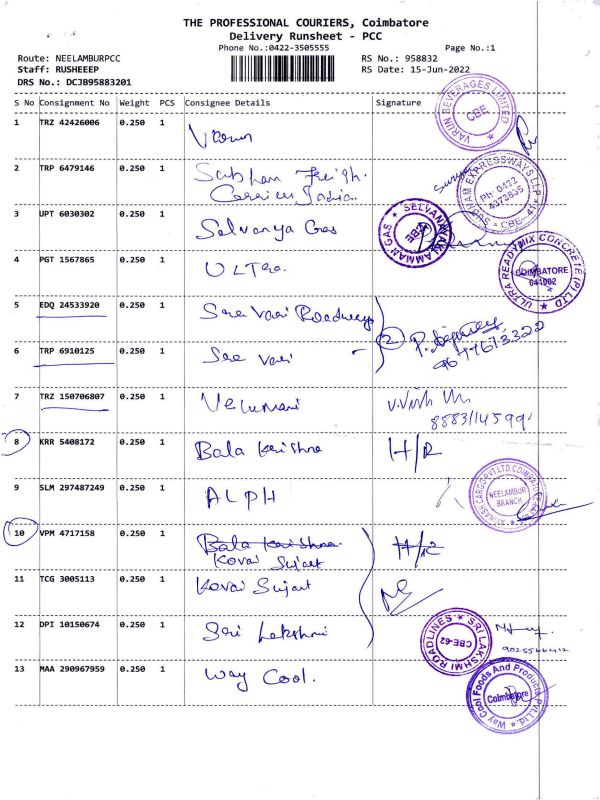 THE PROFESSIONAL COURIERS, Coimbatore
Delivery Runsheet - PCC
Phone No.:0422-3505555
Page No.:1
Route: NEELAMBURPCC
RS No.: 958832
Staff: RUSHEEEP
RS Date: 15-Jun-2022
DRS No.: DCJB95883201
S No Consignment No Weight PCS Consignee Details Signature
1 TRZ 42426006 0.250 1 Varun
VARUN BEVERAGES LIMITED CBE
2 TRP 6479146 0.250 1 Subham Freight
Carriers India
EXPRESSWAYS LLP Ph: 0422 CBE - 41
3 UPT 6030302 0.250 1 Selvanya Gas
SELVANAYAKI AMMAN GAS CBE
4 PGT 1567865 0.250 1 ULTra
ULTRA READYMIX CONCRETE (P) LTD COIMBATORE 641062
5 EDQ 24533920 0.250 1 Sree Vari Roadways
2
6 TRP 6910125 0.250 1 Sree Vari
7 TRZ 150706807 0.250 1 Velumani
8883114599
8 KRR 5408172 0.250 1 Bala Krishna H/R
9 SLM 297487249 0.250 1 ALPH
CARGO PVT. LTD, COIMBATORE NEELAMBUR BRANCH
10 VPM 4717158 0.250 1 Bala Krishna H/R
Kovai Sujart
11 TCG 3005113 0.250 1 Kovai Sujart
12 DPI 10150674 0.250 1 Sri Lakshmi
SRI LAKSHMI ROADLINES CBE-62
13 MAA 290967959 0.250 1 Way Cool.
Way Cool Foods And Products Pvt.Ltd. Coimbatore